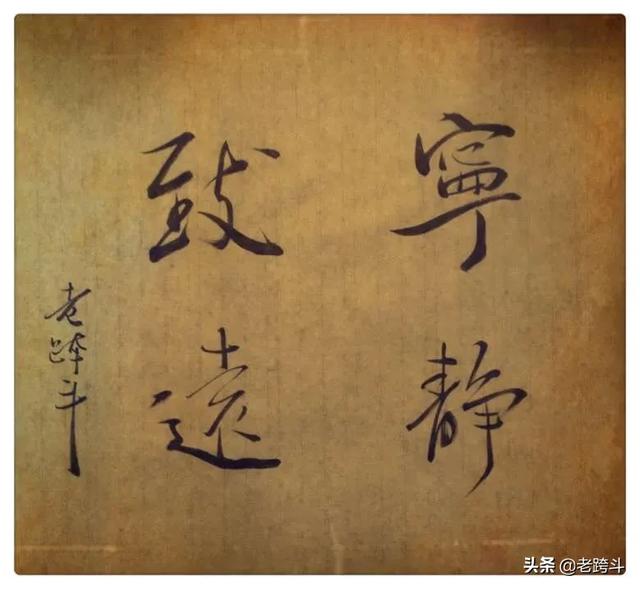 寧靜
致遠
老跨斗
头条 @老跨斗